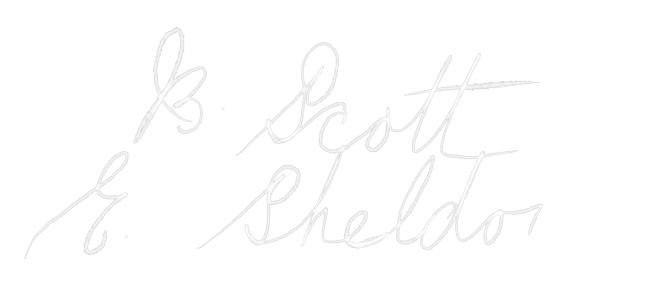 B. Scott
E. Sheldon